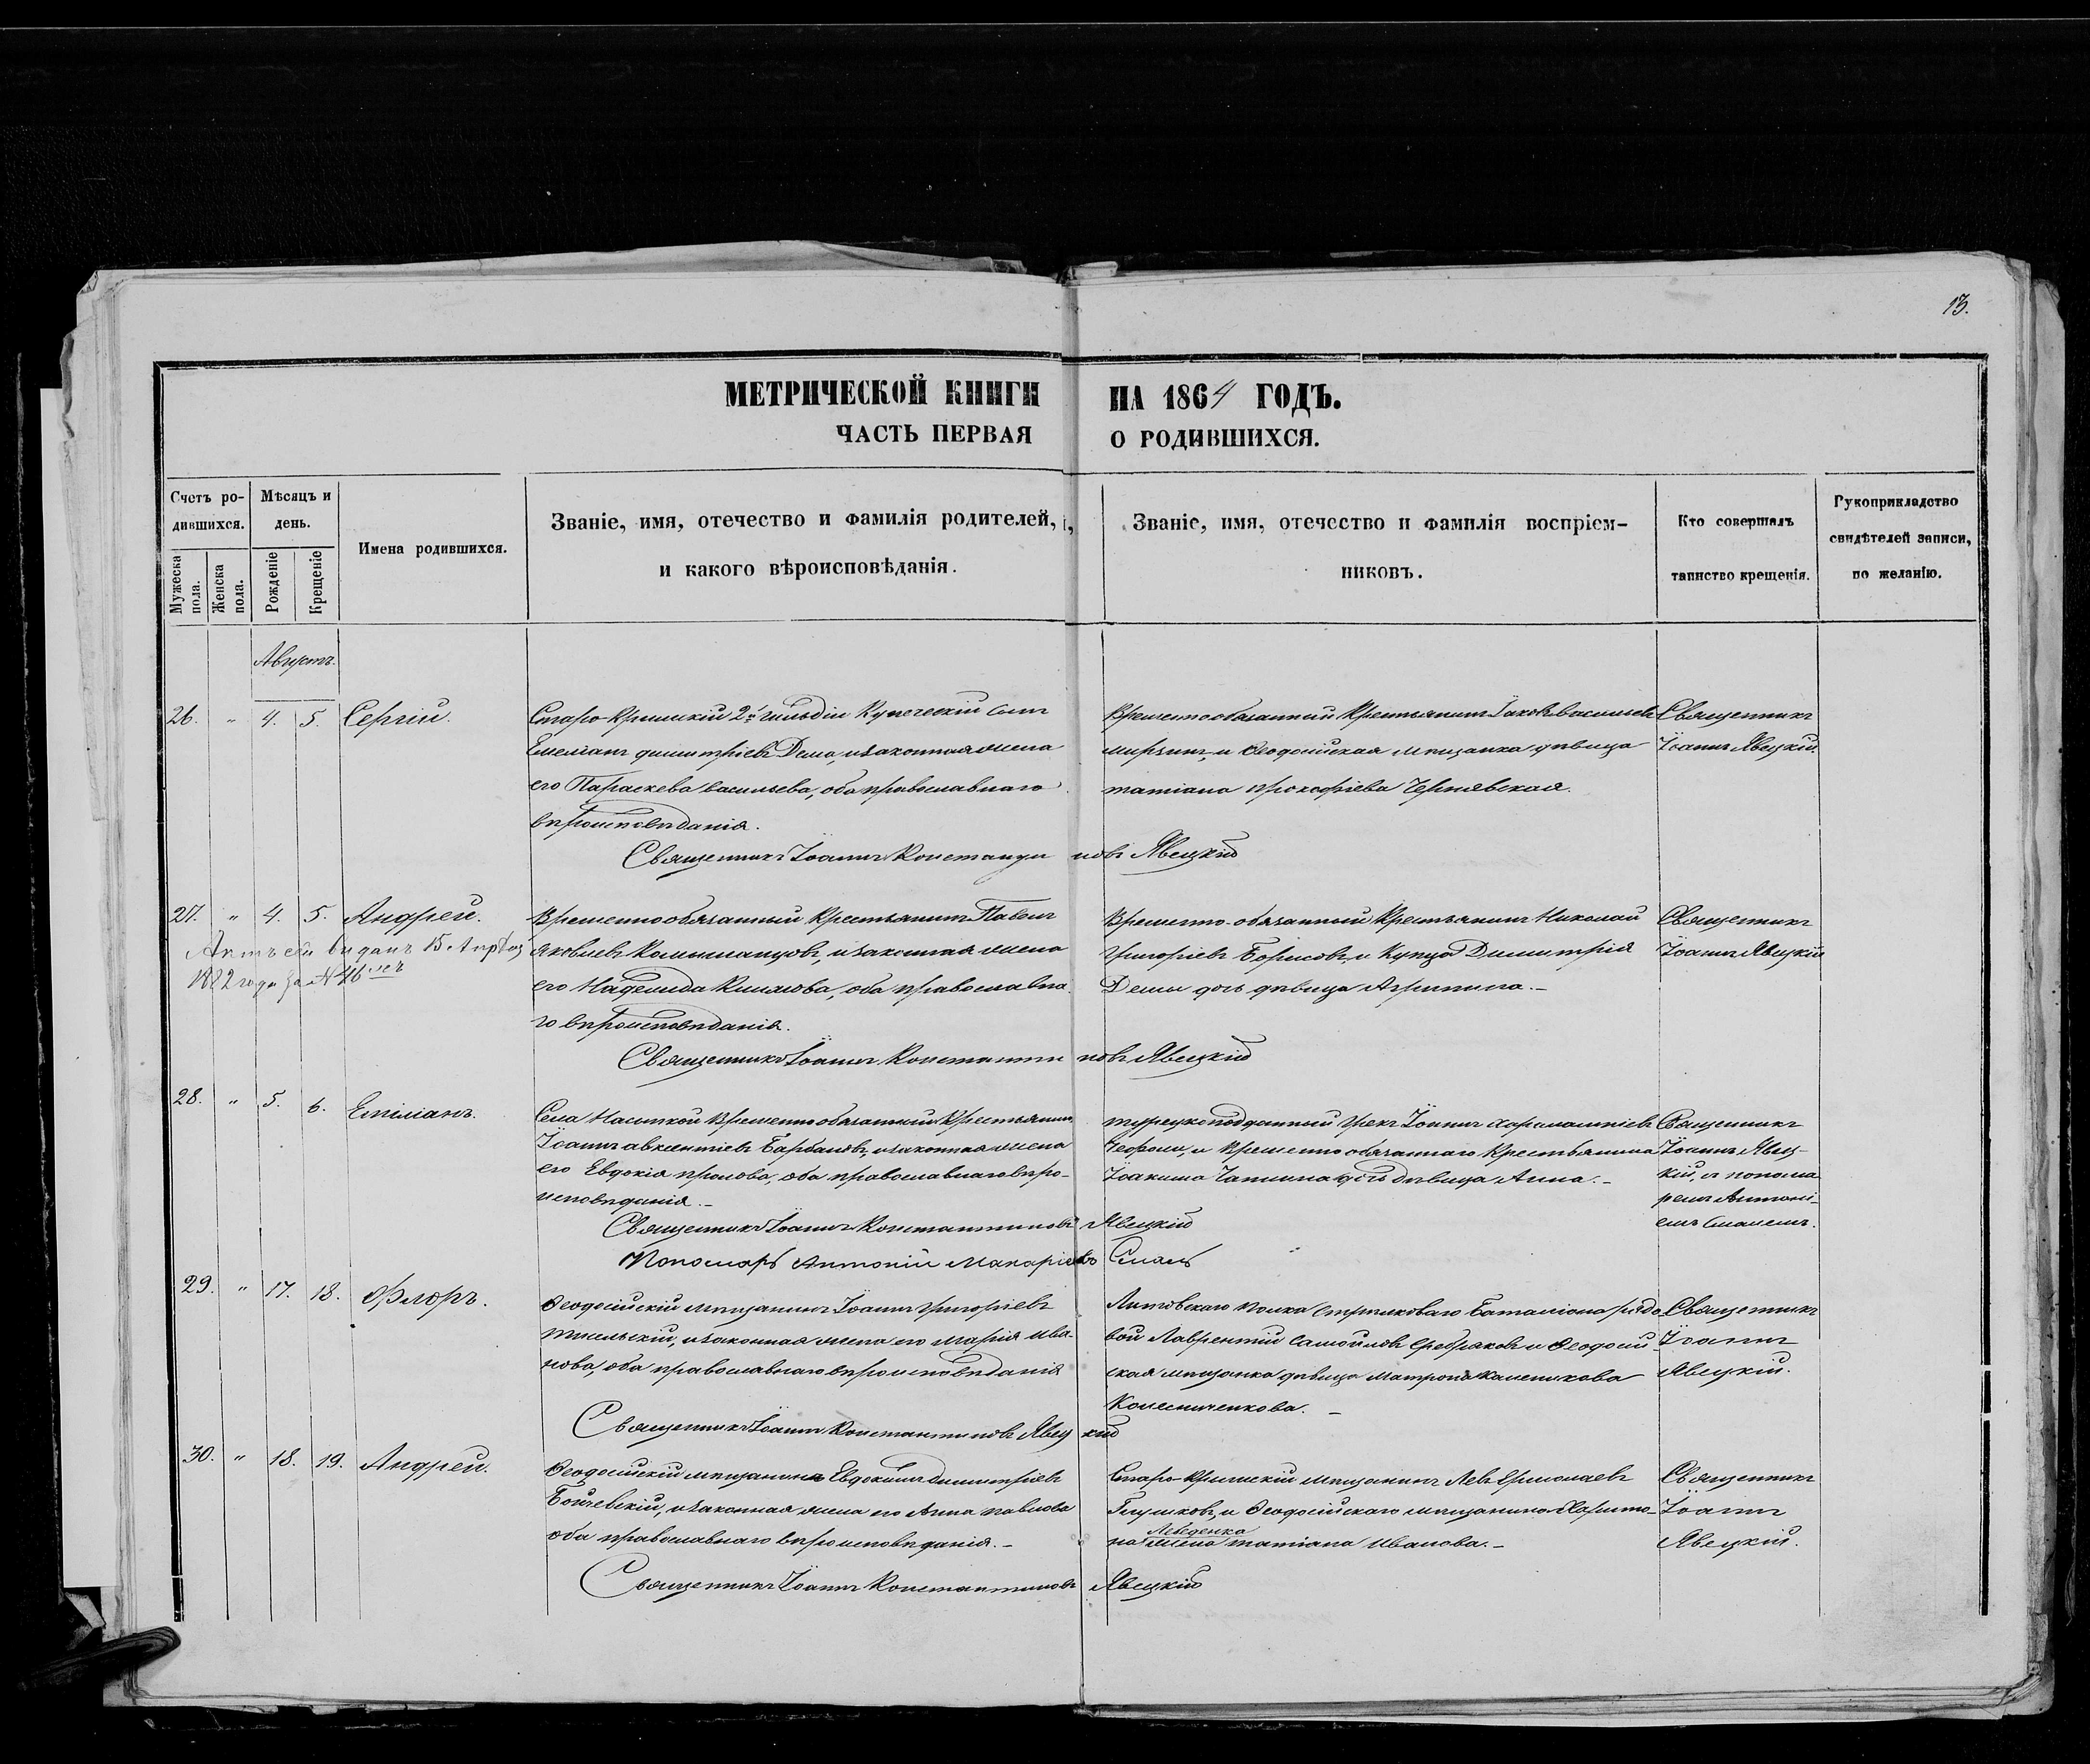 13.
МЕТРИЧЕСКОЙ КНИГИ НА 1864 ГОДЪ.
ЧАСТЬ ПЕРВАЯ О РОДИВШИХСЯ.
Счетъ ро-
дившихся.
Мужеска пола.
Женска пола.
Мѣсяцъ и
день.
Рожденіе
Крещеніе
Имена родившихся.
Званіе, имя, отечество и фамилія родителей,
и какого вѣроисповѣданія.
Званіе, имя, отечество и фамилія воспріем-
никовъ.
Кто совершалъ
таинство крещенія.
Рукоприкладство
свидѣтелей записи,
по желанію.
Августъ.
26. " 4. 5. Сергій.
Старо-Крымскій 2й гильдіи Купеческій сынъ
Емеліанъ димитріевъ Дема, и законная жена
его Параскева васильева, оба православнаго
вѣроисповѣданія.
Временнообязанный Крестьянинъ Іаковъ васильевъ
и Ѳеодосійская мѣщанка дѣвица
татіана прокофіева Чернявская.
Священникъ
Іоаннъ Явецкій.
Священникъ Іоаннъ Константиновъ Явецкій
27. " 4. 5. Андрей.
Актъ сей выданъ 15 Апрѣля
1882 года за № 46
Временнообязанный Крестьянинъ Павелъ
Яковлевъ и законная жена
его Надежда оба православна
го вѣроисповѣданія.
Временно-обязанный Крестьянинъ Николай
Григоріевъ Борисовъ, и Купца Димитрія
Демы дочь дѣвица Агрипина.-
Священникъ
Іоаннъ Явецкій
Священникъ Іоаннъ Константиновъ Явецкій
28. " 5. 6. Емиліанъ.
Села Насыпкой Временнообязанный Крестьянинъ
Іоаннъ авксентіевъ и законная жена
его Евдокія оба православнаго вѣро-
исповѣданія.-
турецкоподданный Грекъ Іоаннъ харалампіевъ
и Временно обязаннаго Крестьянина
Іоакима дочь дѣвица Анна.-
Священникъ
Іоаннъ Явец-
кій, и понома
ремъ Антоні-
емъ
Священникъ Іоаннъ Константиновъ Явецкій
Пономарь Антоній Макаріевъ
29. " 17. 18. Флоръ.
Ѳеодосійскій мѣщанинъ Іоаннъ Григоріевъ
и законная жена его Марія Ива-
нова, оба православнаго вѣроисповѣданія
Литовскаго полка стрѣлковаго Баталіона рядо
вой Лаврентій Самойловъ Серебряковъ и Ѳеодосій
ская мѣщанка дѣвица Матрона
Колесниченкова.-
Священникъ
Іоаннъ
Явецкій.
Священникъ Іоаннъ Константиновъ Явецкій
30. " 18. 19. Андрей.
Ѳеодосійскій мѣщанинъ Евдокимъ димитріевъ
и законная жена его Анна павлова
оба православнаго вѣроисповѣданія.-
Старо-Крымскій мѣщанинъ Левъ Ермолаевъ
Глушковъ, и Ѳеодосійскаго мѣщанина Харито-
Лебеденка
на жена татіана Иванова.-
Священникъ
Іоаннъ
Явецкій.
Священникъ Іоаннъ Константиновъ Явецкій